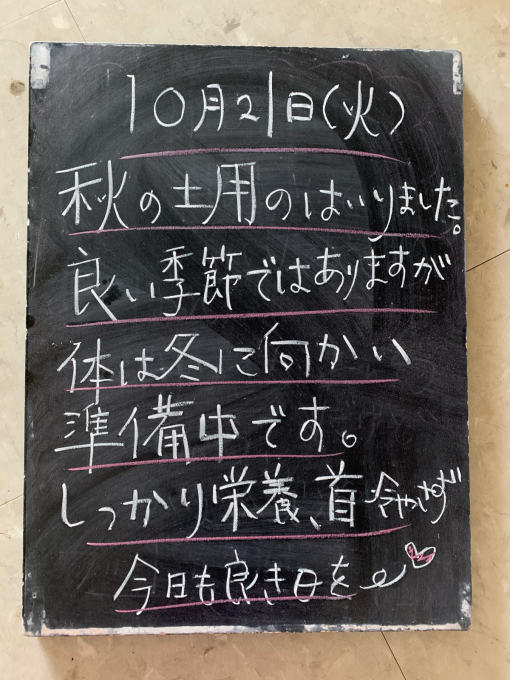 10月21日(火)
秋の土用のはいりました。
良い季節ではありますが
体は冬に向かい
準備中です。
しっかり栄養、首冷やさず
今日も良き日を